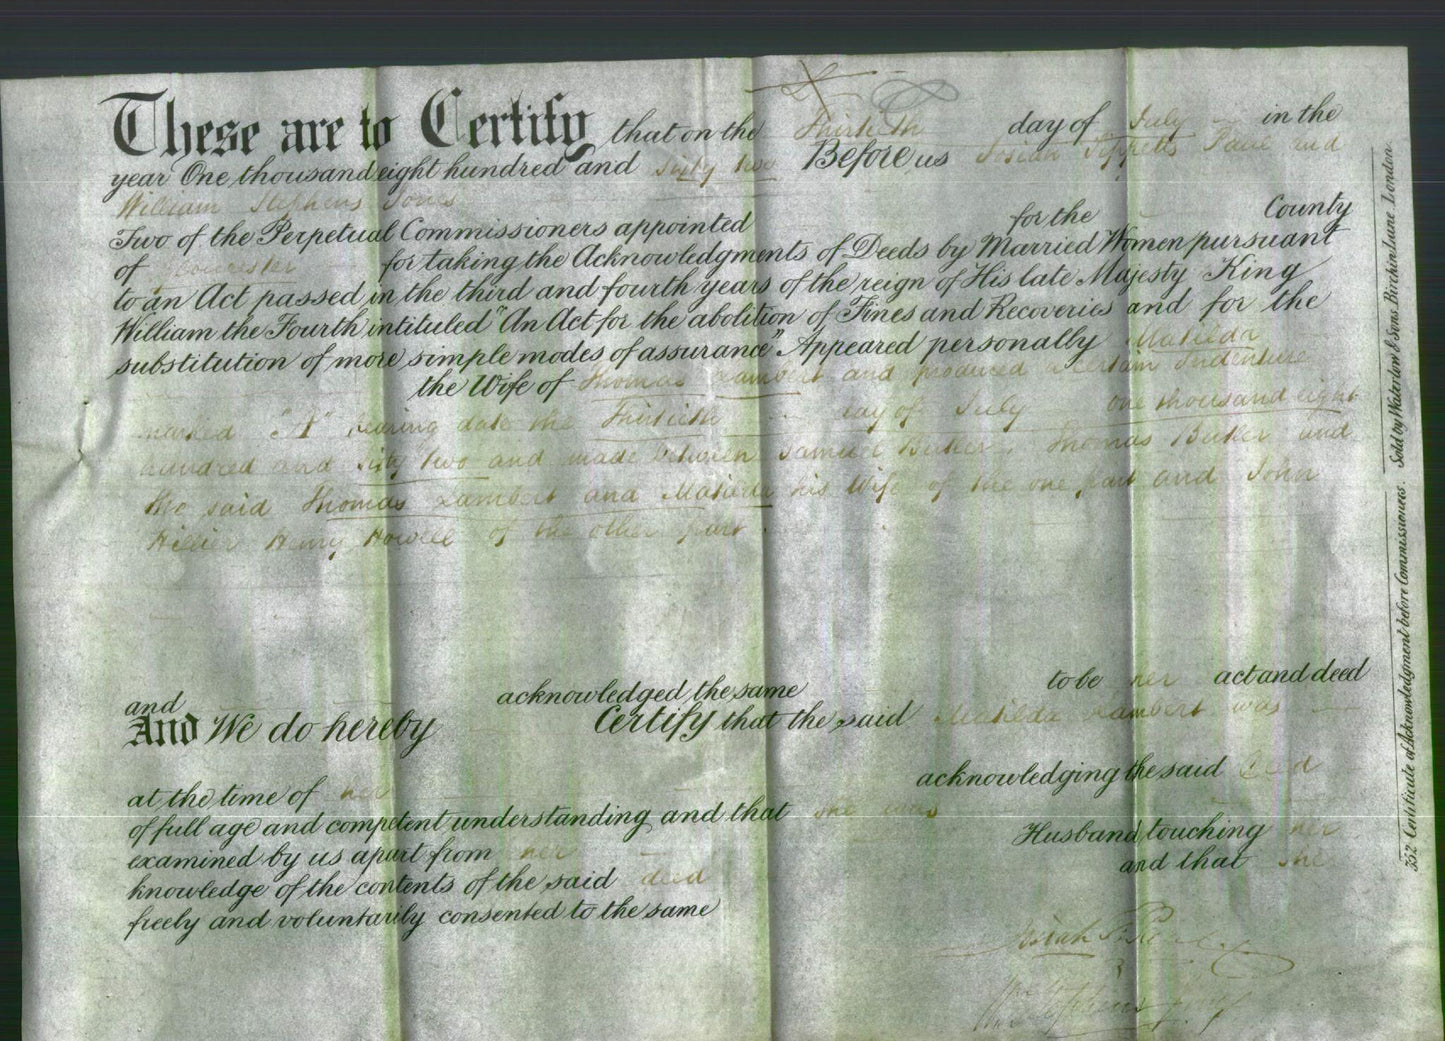 These are to Certify that on the Thirtieth day of July in the
year One thousand eight hundred and sixty two Before us Josiah Tippetts Paul and
William Stephens Jones
Two of the Perpetual Commissioners appointed for the County
of Gloucester for taking the Acknowledgments of Deeds by Married Women pursuant
to an Act passed in the third and fourth years of the reign of His late Majesty King
William the Fourth intituled "An Act for the abolition of Fines and Recoveries and for the
substitution of more simple modes of assurance" Appeared personally Matilda
the Wife of Thomas Lambert and produced a certain Indenture
marked "A" bearing date the Thirtieth day of July one thousand eight
hundred and sixty two and made between Samuel Butler, Thomas Butler and
the said Thomas Lambert and Matilda his Wife of the one part and John
Hillier Henry Howell of the other part
and acknowledged the same to be her act and deed
And We do hereby Certify that the said Matilda Lambert was
at the time of her acknowledging the said Deed
of full age and competent understanding and that she was
examined by us apart from her Husband touching her
knowledge of the contents of the said deed and that she
freely and voluntarily consented to the same
Josiah T. Paul
Wm Stephens Jones
352 Certificate of Acknowledgment before Commissioners. Sold by Waterlow & Sons Birchin Lane London